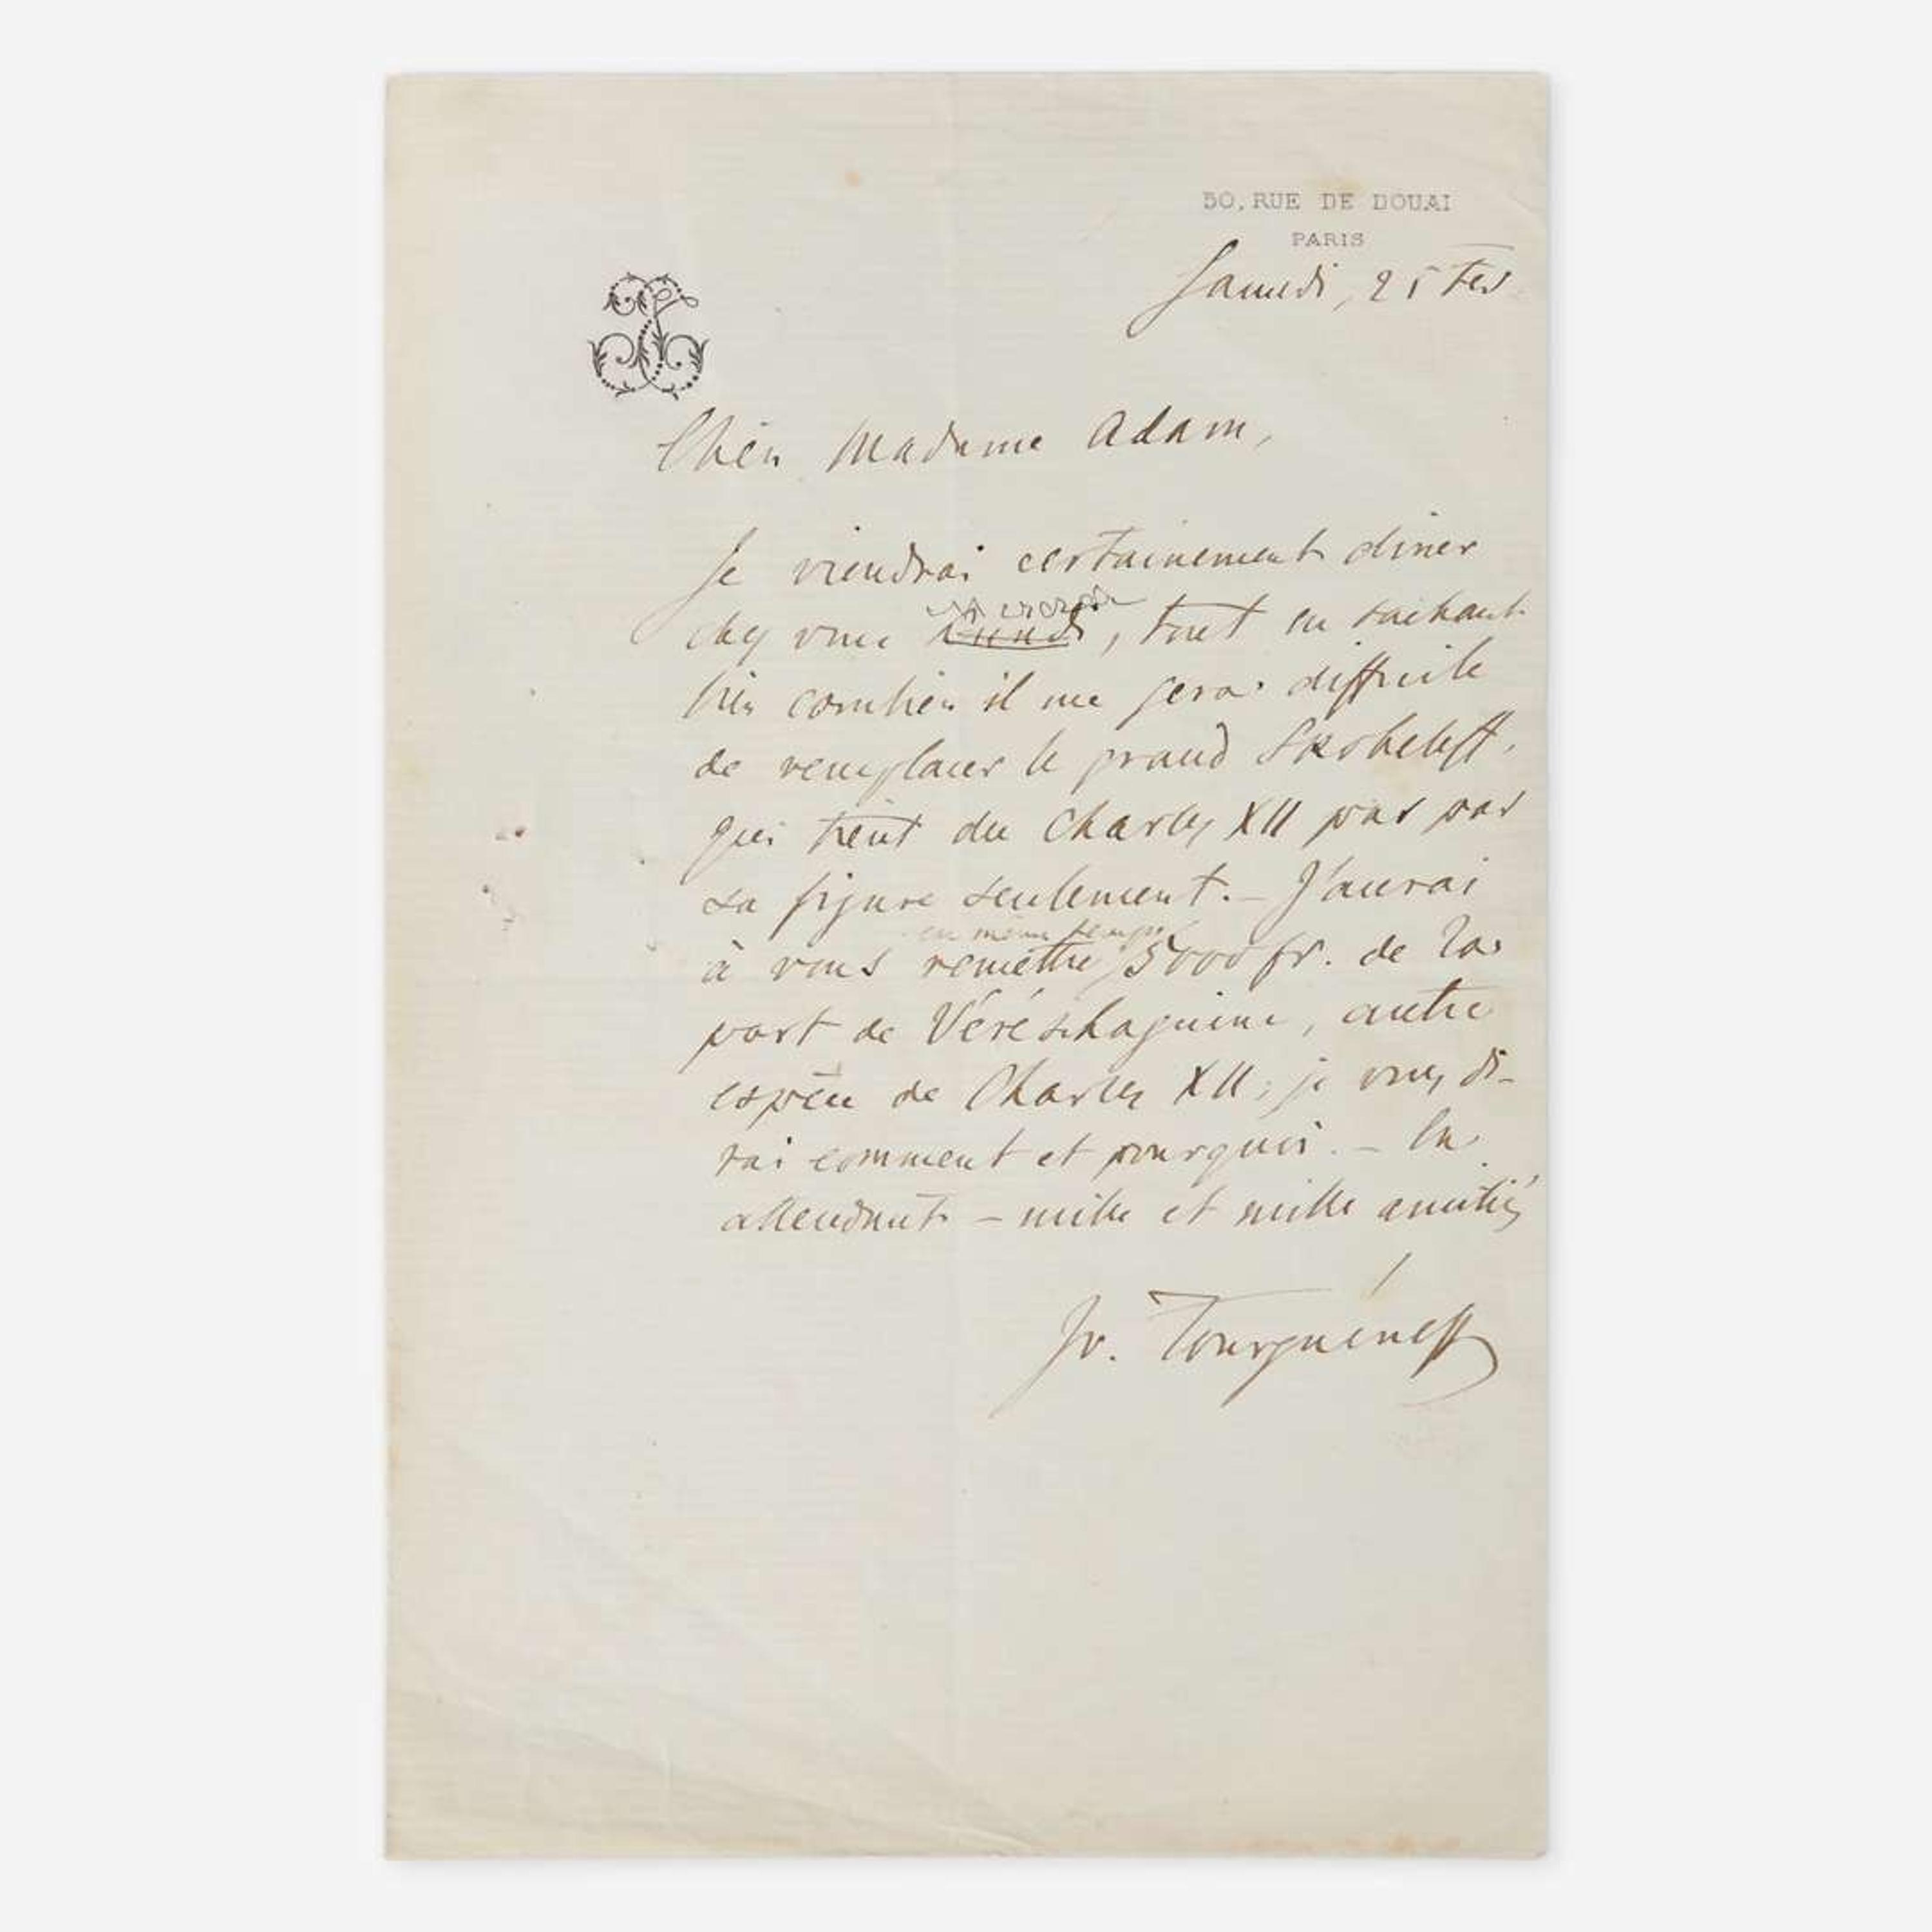 50, RUE DE DOUAI
PARIS
Samedi, 25 Fev.
Chère Madame Adam,
Je viendrai certainement diner
mercredi
chez vous lundi, tout en sachant
bien combien il me sera difficile
de remplacer le grand Skobeleff,
qui tient du Charles XII pas par
sa figure seulement. – J'aurai
en même temps
à vous remettre 5000 fr. de la
part de Véréschaguine, autre
espèce de Charles XII; je vous di-
rai comment et pourquoi. – En
attendant – mille et mille amitiés
Iv. Tourguéneff